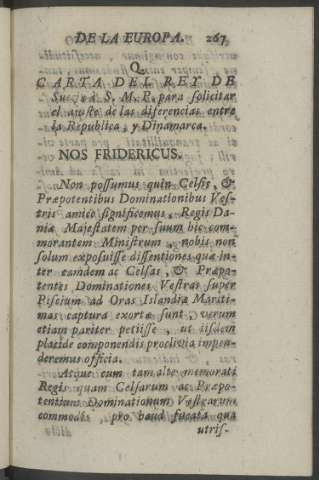 DE LA EUROPA. 267
Q.
CARTA DEL REY DE
Suecia à S. M. P. para solicitar
el ajuste de las diferencias entre
la Republica, y Dinamarca.
NOS FRIDERICUS.
Non possumus quin Celsis, &
Præpotentibus Dominationibus Ves-
tris amicè significemus, Regis Da-
niæ Majestatem per suum hic com-
morantem Ministrum, nobis non
solum exposuisse dissentiones quæ in-
ter eamdem ac Celsas, & Præpo-
tentes Dominationes Vestras super
Piscium ad Oras Islandiæ Mariti-
mas captura exortæ sunt, verum
etiam pariter petiisse, ut iisdem
placide componendis proclivia impen-
deremus officia.
Atque cum tam alte memorati
Regis quam Celsarum ac Præpo-
tentium Dominationum Vestrarum
commodis, pro haud fucata qua
utris-